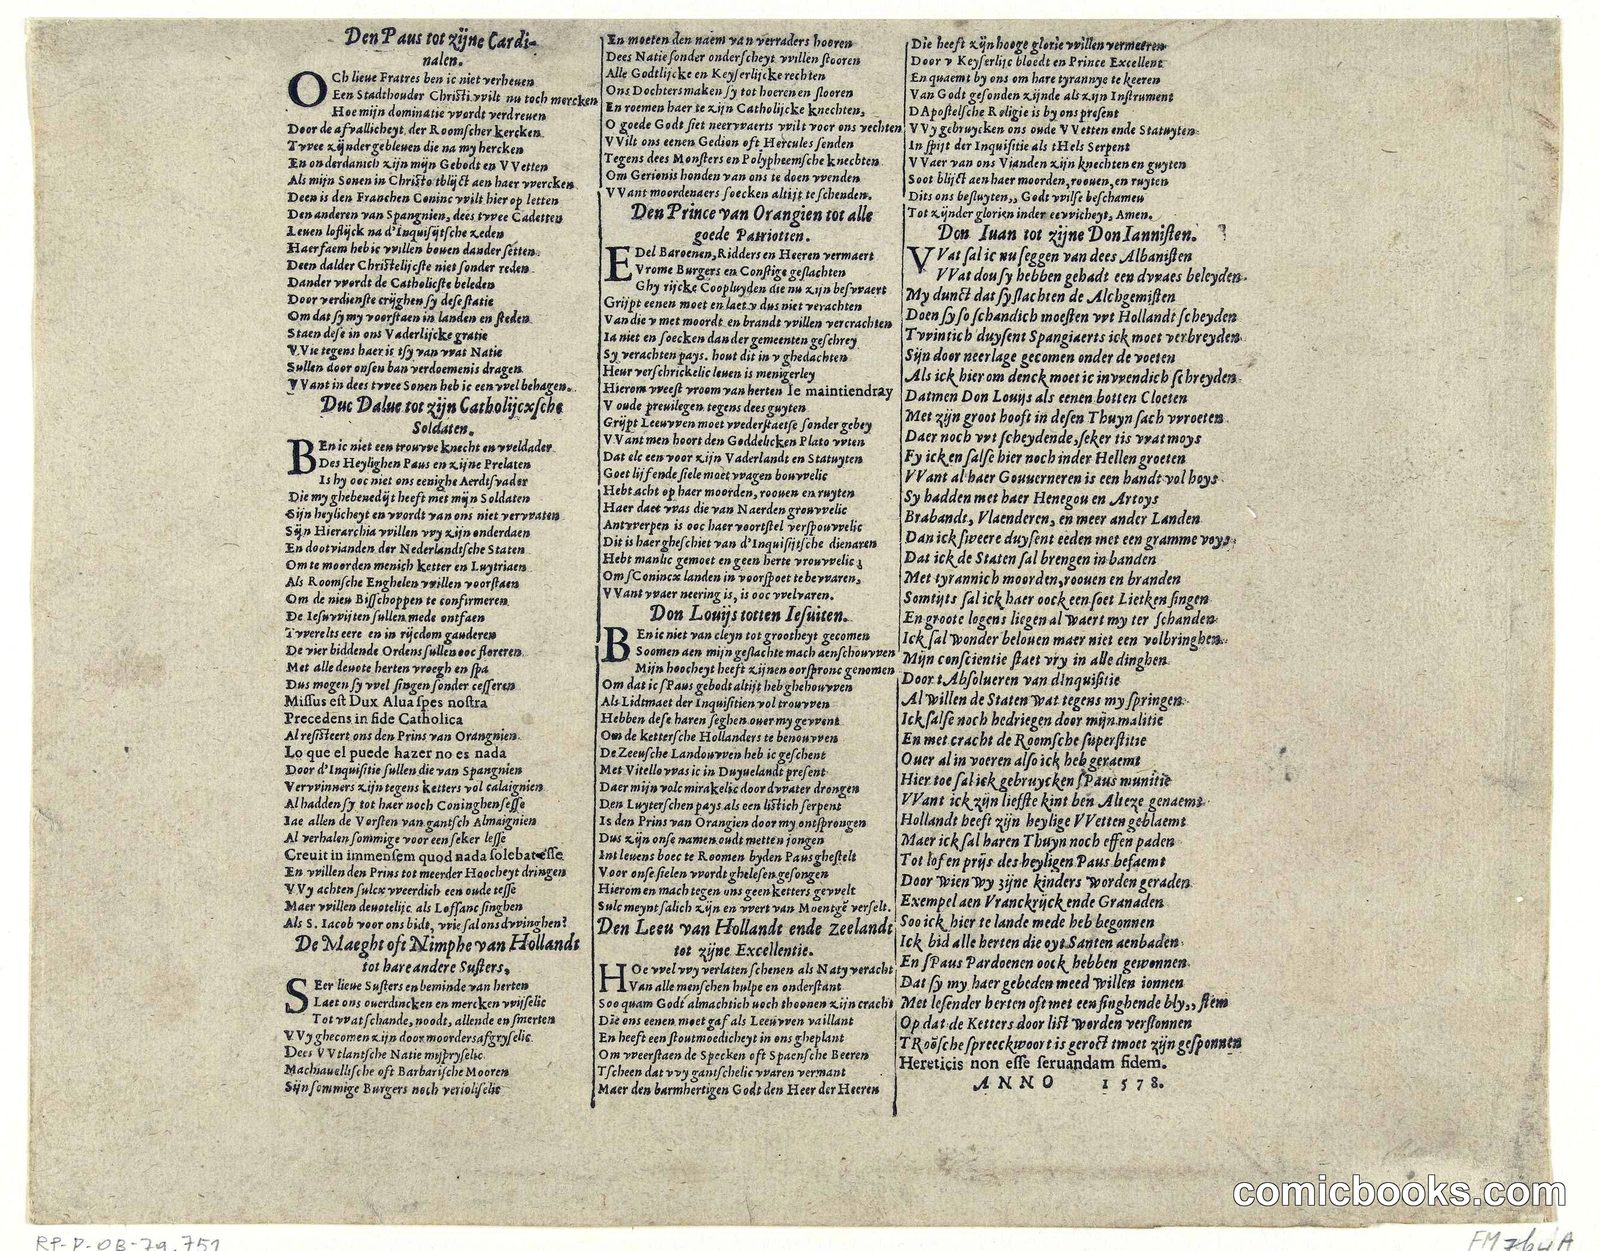 Den Paus tot zijne Cardi-
nalen.
OCh lieue Fratres ben ic niet verheuen
Een Stadthouder Christi vvilt nu toch mercken
Hoe mijn dominatie vvordt verdreuen
Door de afvallicheyt der Roomscher kercken
Tvvee zijnder gebleuen die na my hercken
En onderdanich zijn mijn Gebodt en VVetten
Als mijn Sonen in Christo tblijct aen haer vvercken
Deen is den Franchen Coninc vvilt hier op letten
Den anderen van Spangnien, dees tvvee Cadetten
Leuen loflijck na d'Inquisijtsche zeden
Haer faem heb ic vvillen bouen dander setten
Deen dalder Christelijcste niet sonder reden
Dander vvordt de Catholicste beleden
Door verdienste crijghen sy dese statie
Om dat sy my voorstaen in landen en steden
Staen dese in ons Vaderlijcke gratie
VVie tegens haer is tsy van vvat Natie
Sullen door onsen ban verdoemenis dragen
VVant in dees tvvee Sonen heb ic een vvel behagen.
Duc Dalue tot zijn Catholijcxsche
Soldaten.
BEn ic niet een trouvve knecht en vveldader
Des Heylighen Paus en zijne Prelaten
Is hy ooc niet ons eenighe Aerdtsvader
Die my ghebenedijt heeft met mijn Soldaten
Sijn heylicheyt en vvordt van ons niet vervvaten
Sijn Hierarchia vvillen vvy zijn onderdaen
En doot vianden der Nederlandtsche Staten
Om te moorden menich ketter en Luytriaen
Als Roomsche Enghelen vvillen voorstaen
Om de nieu Bisschoppen te confirmeren
De Iesuvvijten sullen mede ontfaen
Tvverelts eere en in rijcdom gauderen
De vier biddende Ordens sullen ooc floreren
Met alle deuote herten vroegh en spa
Dus mogen sy vvel singen sonder cesseren
Missus est Dux Alua spes nostra
Precedens in fide Catholica
Al resisteert ons den Prins van Orangnien
Lo que el puede hazer no es nada
Door d'Inquisitie sullen die van Spangnien
Vervvinners zijn tegens ketters vol calaignien
Al hadden sy tot haer noch Coninghen sesse
Iae allen de Vorsten van gantsch Almaignien
Al verhalen sommige voor een seker lesse
Creuit in immensem quod nada solebat esse
En vvillen den Prins tot meerder Hoocheyt dringen
VVy achten sulcx vveerdich een oude tesse
Maer vvillen deuotelijc als Lossanc singhen
Als S. Iacob voor ons bidt, vvie sal ons dvvinghen?
De Maeght oft Nimphe van Hollandt
tot hare andere Susters,
SEer lieue Susters en beminde van herten
Laet ons ouerdincken en mercken vvijselic
Tot vvat schande, noodt, allende en smerten
VVy ghecomen zijn door moorders afgryselic
Dees VVtlantsche Natie mispryselic
Machiauellische oft Barbarische Mooren
Sijn sommige Burgers noch veriolijselic
En moeten den naem van verraders hooren
Dees Natie sonder onderscheyt vvillen stooren
Alle Godtlijcke en Keyserlijcke rechten
Ons Dochters maken sy tot hoeren en slooren
En roemen haer te zijn Catholijcke knechten,
O goede Godt siet neervvaerts vvilt voor ons vechten
VVilt ons eenen Gedion oft Hercules senden
Tegens dees Monsters en Polypheemsche knechten
Om Gerionis honden van ons te doen vvenden
VVant moordenaers soecken altijt te schenden.
Den Prince van Orangien tot alle
goede Patriotten.
EDel Baroenen, Ridders en Heeren vermaert
Vrome Burgers en Constige geslachten
Ghy rijcke Coopluyden die nu zijn besvvaert
Grijpt eenen moet en laet v dus niet verachten
Van die v met moordt en brandt vvillen vercrachten
Ia niet en soecken dan der gemeenten geschrey
Sy verachten pays. hout dit in v ghedachten
Heur verschrickelic leuen is menigerley
Hierom vveest vroom van herten Ie maintiendray
V oude preuilegen tegens dees guyten
Grijpt Leeuvven moet vvederstaetse sonder gebey
VVant men hoort den Goddelicken Plato vvten
Dat elc een voor zijn Vaderlandt en Statuyten
Goet lijf ende siele moet vvagen bouvvelic
Hebt acht op haer moorden, roouen en ruyten
Haer daet vvas die van Naerden grouvvelic
Antvverpen is ooc haer voortstel verspouvvelic
Dit is haer gheschiet van d'Inquisijtsche dienaren
Hebt manlic gemoet en geen herte vrouvvelic;
Om sConincx landen in voorspoet te bevvaren,
VVant vvaer neering is, is ooc vvelvaren.
Don Louijs totten Iesuiten.
BEn ic niet van cleyn tot grootheyt gecomen
Soomen aen mijn geslachte mach aenschouvven
Mijn hoocheyt heeft zijnen oorspronc genomen
Om dat ic sPaus gebodt altijt heb ghehouvven
Als Lidtmaet der Inquisitien vol trouvven
Hebben dese haren seghen ouer my gevvent
Om de kettersche Hollanders te benouvven
De Zeeusche Landouvven heb ic geschent
Met Vitello vvas ic in Duyuelandt present
Daer mijn volc mirakelic door dvvater drongen
Den Luyterschen pays als een listich serpent
Is den Prins van Orangien door my ontsprongen
Dus zijn onse namen oudt metten jongen
Int leuens boec te Roomen byden Paus ghestelt
Voor onse sielen vvordt ghelesen gesongen
Hierom en mach tegen ons geen ketters gevvelt
Sulc meynt salich zijn en vvert van Moentgē verselt.
Den Leeu van Hollandt ende Zeelandt
tot zijne Excellentie.
HOe vvel vvy verlaten schenen als Naty veracht
Van alle menschen hulpe en onderstant
Soo quam Godt almachtich noch thoonen zijn cracht
Die ons eenen moet gaf als Leeuvven vaillant
En heeft een stoutmoedicheyt in ons gheplant
Om vveerstaen de Specken oft Spaensche Beeren
Tscheen dat vvy gantschelic vvaren vermant
Maer den barmhertigen Godt den Heer der Heeren
Die heeft zijn hooge glorie vvillen vermeeren
Door v Keyserlijc bloedt en Prince Excellent
En quaemt by ons om hare tyrannye te keeren
Van Godt gesonden zijnde als zijn Instrument
DApostelsche Religie is by ons present
VVy gebruycken ons oude VVetten ende Statuyten
In spijt der Inquisitie als tHels Serpent
VVaer van ons Vianden zijn knechten en guyten
Soot blijct aen haer moorden, roouen, en ruyten
Dits ons besluyten,, Godt vvilse beschamen
Tot zijnder glorien inder eevvicheyt, Amen.
Don Iuan tot zijne Don Iannisten.
VVat sal ic nu seggen van dees Albanisten
VVat dou sy hebben gehadt een dvvaes beleyden
My dunct dat sy slachten de Alchgemisten
Doen sy so schandich moesten vvt Hollandt scheyden
Tvvintich duysent Spangiaerts ick moet verbreyden
Sijn door neerlage gecomen onder de voeten
Als ick hier om denck moet ic invvendich schreyden
Datmen Don Louijs als eenen botten Cloeten
Met zijn groot hooft in desen Thuyn sach vvroeten
Daer noch vvt scheydende, seker tis vvat moys
Fy ick en salse hier noch inder Hellen groeten
VVant al haer Gouuerneren is een handt vol hoys
Sy hadden met haer Henegou en Artoys
Brabandt, Vlaenderen, en meer ander Landen
Dan ick sweere duysent eeden met een gramme voys
Dat ick de Staten sal brengen in banden
Met tyrannich moorden, roouen en branden
Somtijts sal ick haer oock een soet Lietken singen
En groote logens liegen al waert my ter schanden
Ick sal wonder belouen maer niet een volbringhen
Mijn conscientie staet vry in alle dinghen
Door t Absolueren van dInquisitie
Al willen de Staten wat tegens my springen
Ick salse noch bedriegen door mijn malitie
En met cracht de Roomsche superstitie
Ouer al in voeren also ick heb geraemt
Hier toe sal ick gebruycken sPaus munitie
VVant ick zijn liefste kint ben Alteze genaemt
Hollandt heeft zijn heylige VVetten geblaemt
Maer ick sal haren Thuyn noch effen paden
Tot lof en prijs des heyligen Paus befaemt
Door wien wy zijne kinders worden geraden
Exempel aen Vranckrijck ende Granaden
Soo ick hier te lande mede heb begonnen
Ick bid alle herten die oyt Santen aenbaden
En sPaus Pardoenen oock hebben gewonnen
Dat sy my haer gebeden meed willen ionnen
Met lesender herten oft met een singhende bly,, stem
Op dat de Ketters door list worden verslonnen
TRoösche spreeckwoort is geroct tmoet zijn gesponnen
Hereticis non esse seruandam fidem.
ANNO 1578.
comicbooks.com
RP-P-OB-79.751